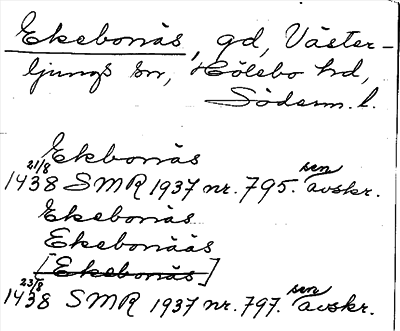 Ekebonäs, gd, Väster-
ljungs sn, Hölebo hd,
Söderm. l.
Ekbonäs
21/8 1438 SMR 1937 nr. 795. sen avskr.
Ekebonäs
Ekebonääs
[Ekebonäs]
23/8 1438 SMR 1937 nr. 797. sen avskr.